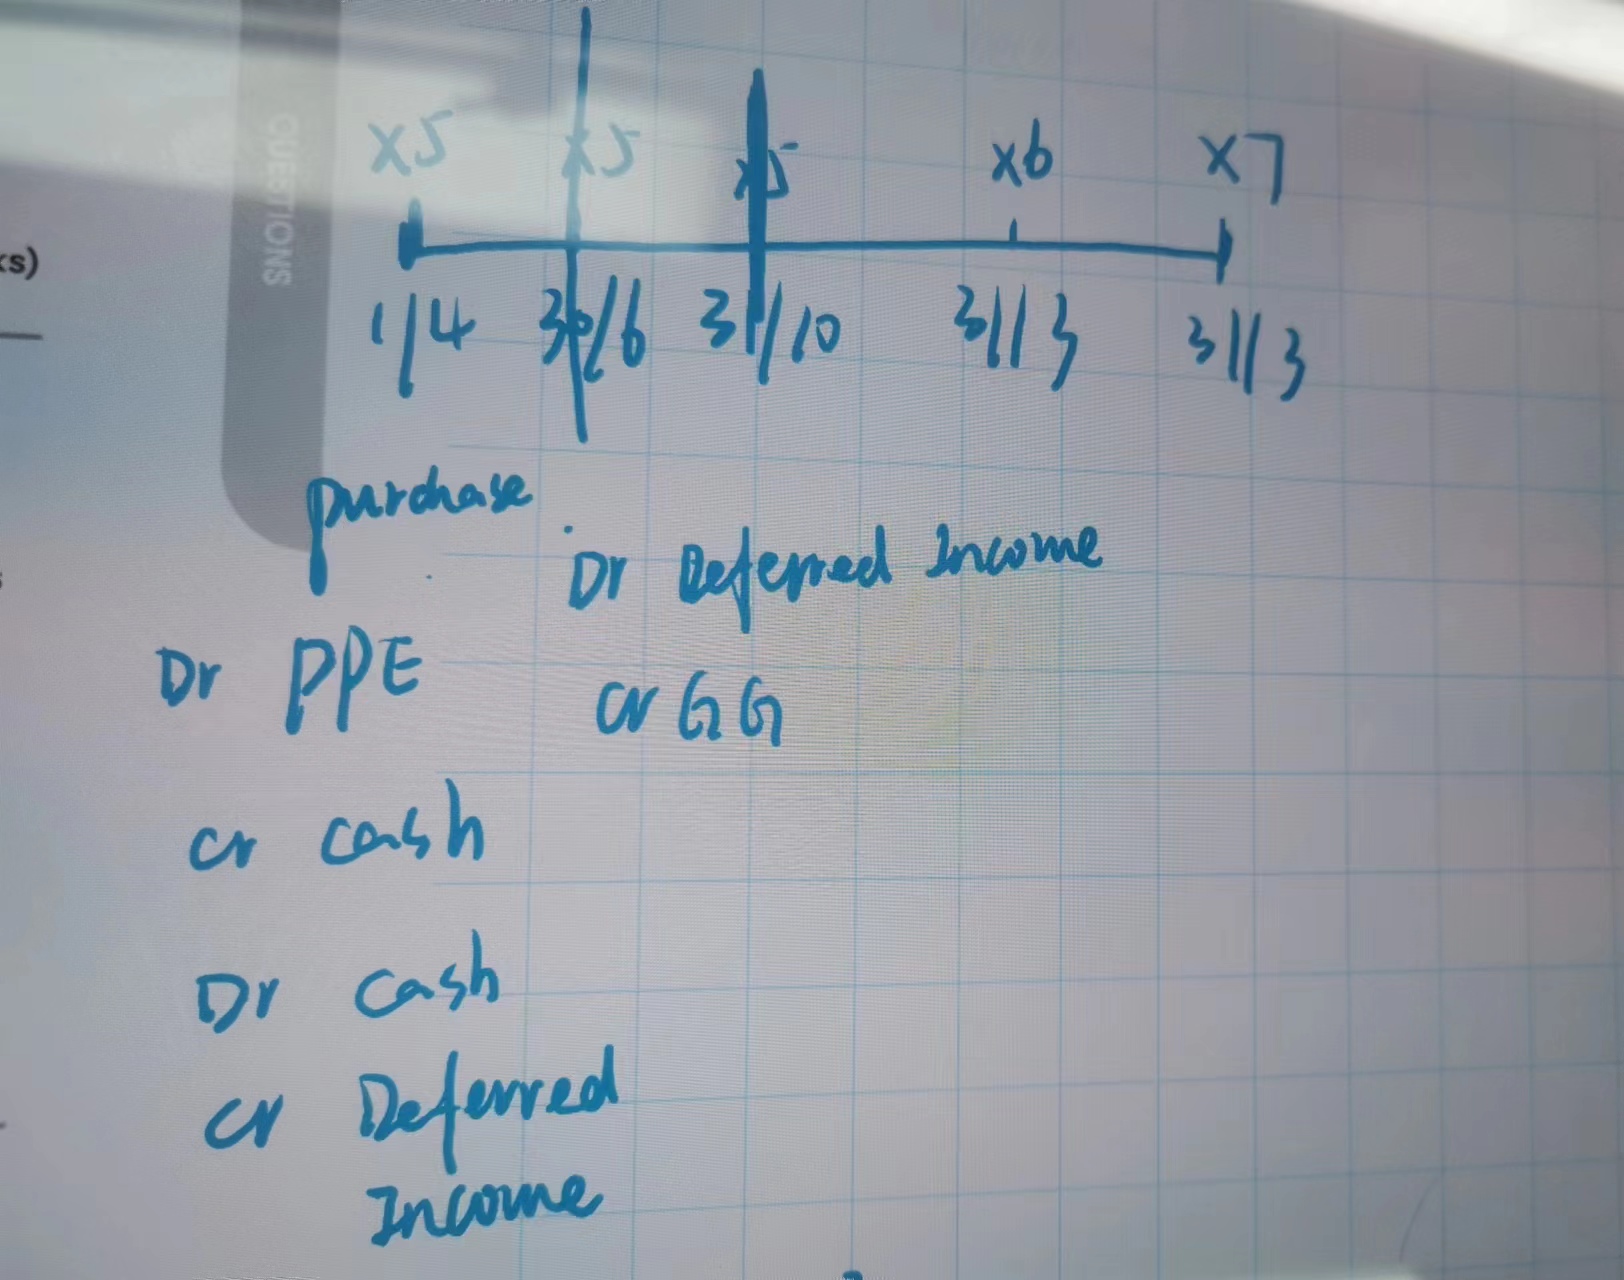 QUESTIONS
ks)
x5 x5 x5 x6 x7
1/4 30/6 31/10 31/3 31/3
purchase
Dr Deferred Income
Dr PPE
cr GG
cr cash
Dr cash
cr Deferred
Income